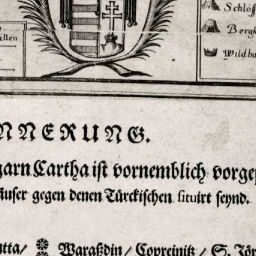 Schlöss
Berg
Wildba
llen
NNERUNG.
garn Cartha ist vornemblich vorge
äuser gegen denen Türckischen situirt seynd.
tta/ Waraßdin/ Copreinitz/ S. Jör